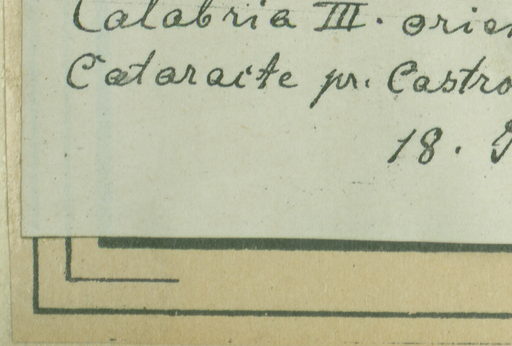 Calabria III. orien
Cataracte pr. Castro
18.